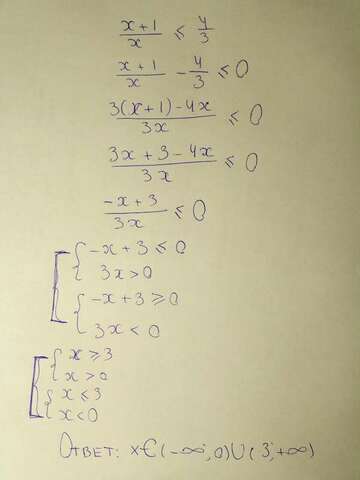 (x+1)/x ≤ 4/3
(x+1)/x - 4/3 ≤ 0
(3(x+1)-4x)/3x ≤ 0
(3x+3-4x)/3x ≤ 0
(-x+3)/3x ≤ 0
-x+3 ≤ 0
3x > 0
-x+3 ≥ 0
3x < 0
x ≥ 3
x > 0
x ≤ 3
x < 0
Ответ: x∈(-∞;0)∪(3;+∞)